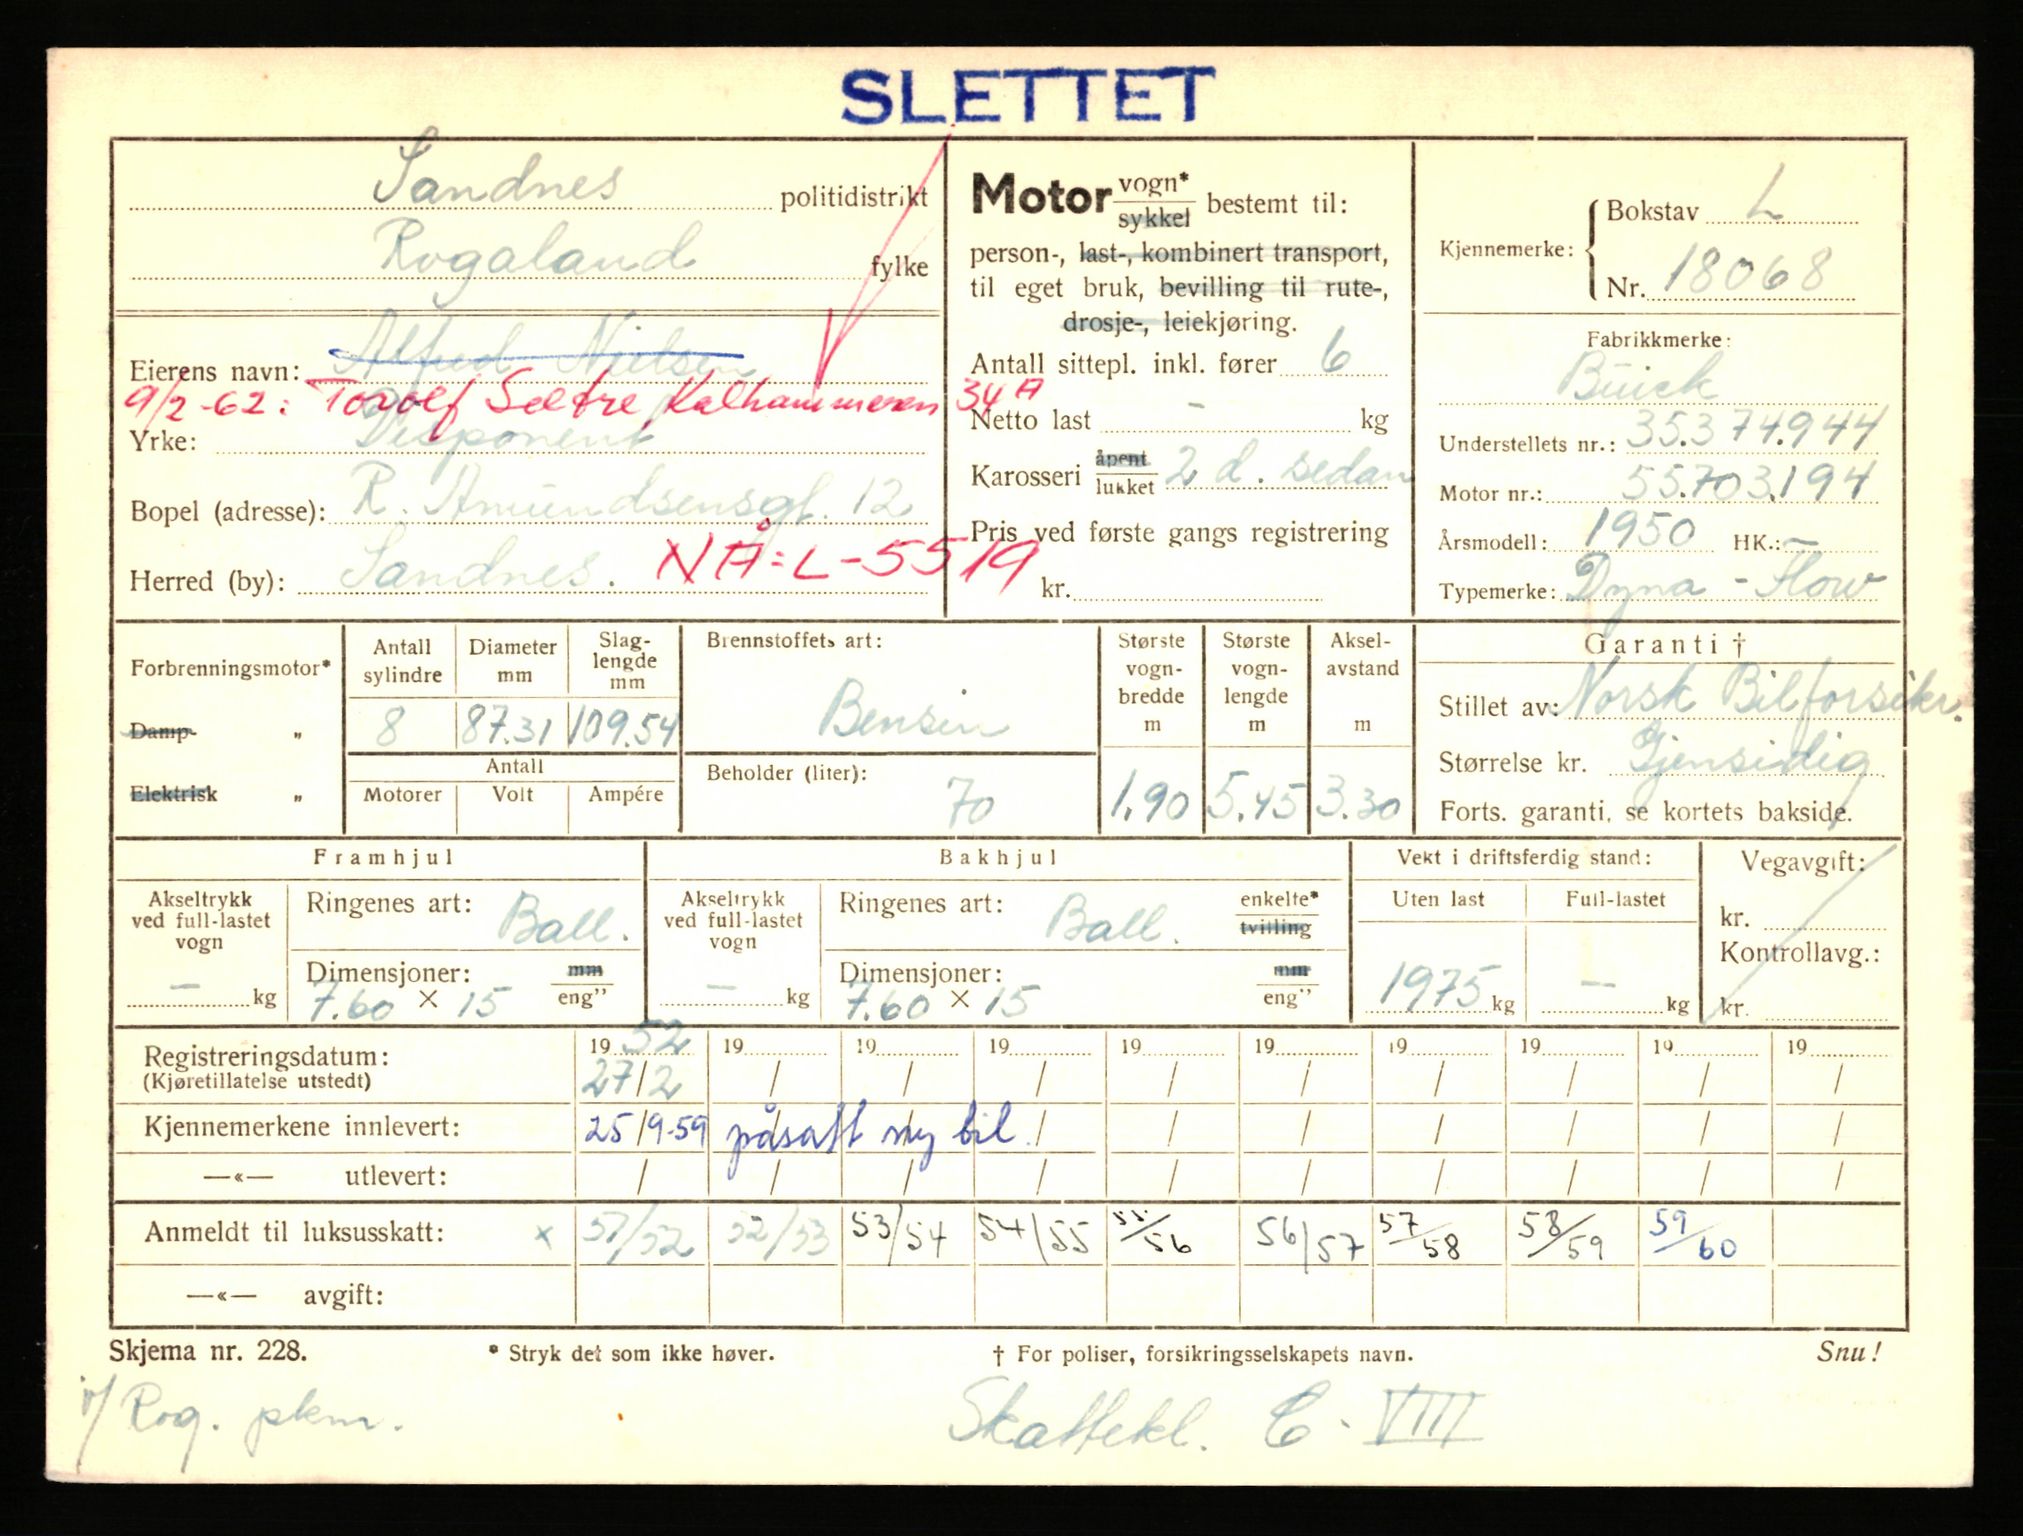 SLETTET
Sandnes politidistrikt
Rogaland fylke
Eierens navn: Alfred Nielsen
9/2-62: Torolf Sæltre, Kalhammeren 34 A
Yrke: Disponent
Bopel (adresse): R. Amundsensgt. 12
Herred (by): Sandnes. NÅ: L-5519
Motor vogn* sykkel bestemt til:
person-, last-, kombinert transport,
til eget bruk, bevilling til rute-,
drosje-, leiekjøring.
Antall sittepl. inkl. fører 6
Netto last - kg
Karosseri åpent lukket 2 d. sedan
Pris ved første gangs registrering
kr.
Kjennemerke: Bokstav L
Nr. 18068
Fabrikkmerke:
Buick
Understellets nr.: 35.374.944
Motor nr.: 55.703.194
Årsmodell: 1950 HK.: -
Typemerke: Dyna - Flow
Forbrenningsmotor*
Damp- „
Elektrisk „
Antall sylindre Diameter mm Slag-lengde mm
8 87.31 109.54
Antall
Motorer Volt Ampére
Brennstoffets art:
Bensin
Beholder (liter):
70
Største vogn-bredde m Største vogn-lengde m Aksel-avstand m
1.90 5.45 3.30
Garanti †
Stillet av: Norsk Bilforsikr.
Størrelse kr. Gjensidig
Forts. garanti, se kortets bakside.
Framhjul
Akseltrykk ved full-lastet vogn
- kg
Ringenes art: Ball.
Dimensjoner: mm
7.60 × 15 eng"
Bakhjul
Akseltrykk ved full-lastet vogn
- kg
Ringenes art: Ball. enkelte* tvilling
Dimensjoner: mm
7.60 × 15 eng"
Vekt i driftsferdig stand:
Uten last Full-lastet
1975 kg - kg
Vegavgift:
kr.
Kontrollavg.:
kr.
Registreringsdatum: 19 52 19 19 19 19 19 19 19 19 19
(Kjøretillatelse utstedt) 27/2 / / / / / / / / /
Kjennemerkene innlevert: 25/9-59 påsatt ny bil / / / / / / /
—«— utlevert: / / / / / / / / / /
Anmeldt til luksusskatt: x 51/52 52/53 53/54 54/55 55/56 56/57 57/58 58/59 59/60
—«— avgift:
Skjema nr. 228. * Stryk det som ikke høver. † For poliser, forsikringsselskapets navn. Snu!
v/ Rog. pkm. Skattekl. C. VIII